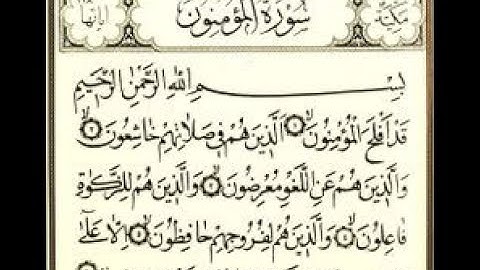 سُورَةُ الْمُؤْمِنُونَ
مَكِّيَّة
بِسْمِ اللهِ الرَّحْمٰنِ الرَّحِيمِ
قَدْ اَفْلَحَ الْمُؤْمِنُونَ ۝ اَلَّذِينَ هُمْ فِى صَلَاتِهِمْ خَاشِعُونَ ۝
وَالَّذِينَ هُمْ عَنِ اللَّغْوِ مُعْرِضُونَ ۝ وَالَّذِينَ هُمْ لِلزَّكٰوةِ
فَاعِلُونَ ۝ وَالَّذِينَ هُمْ لِفُرُوجِهِمْ حَافِظُونَ ۝ اِلَّا عَلٰٓى